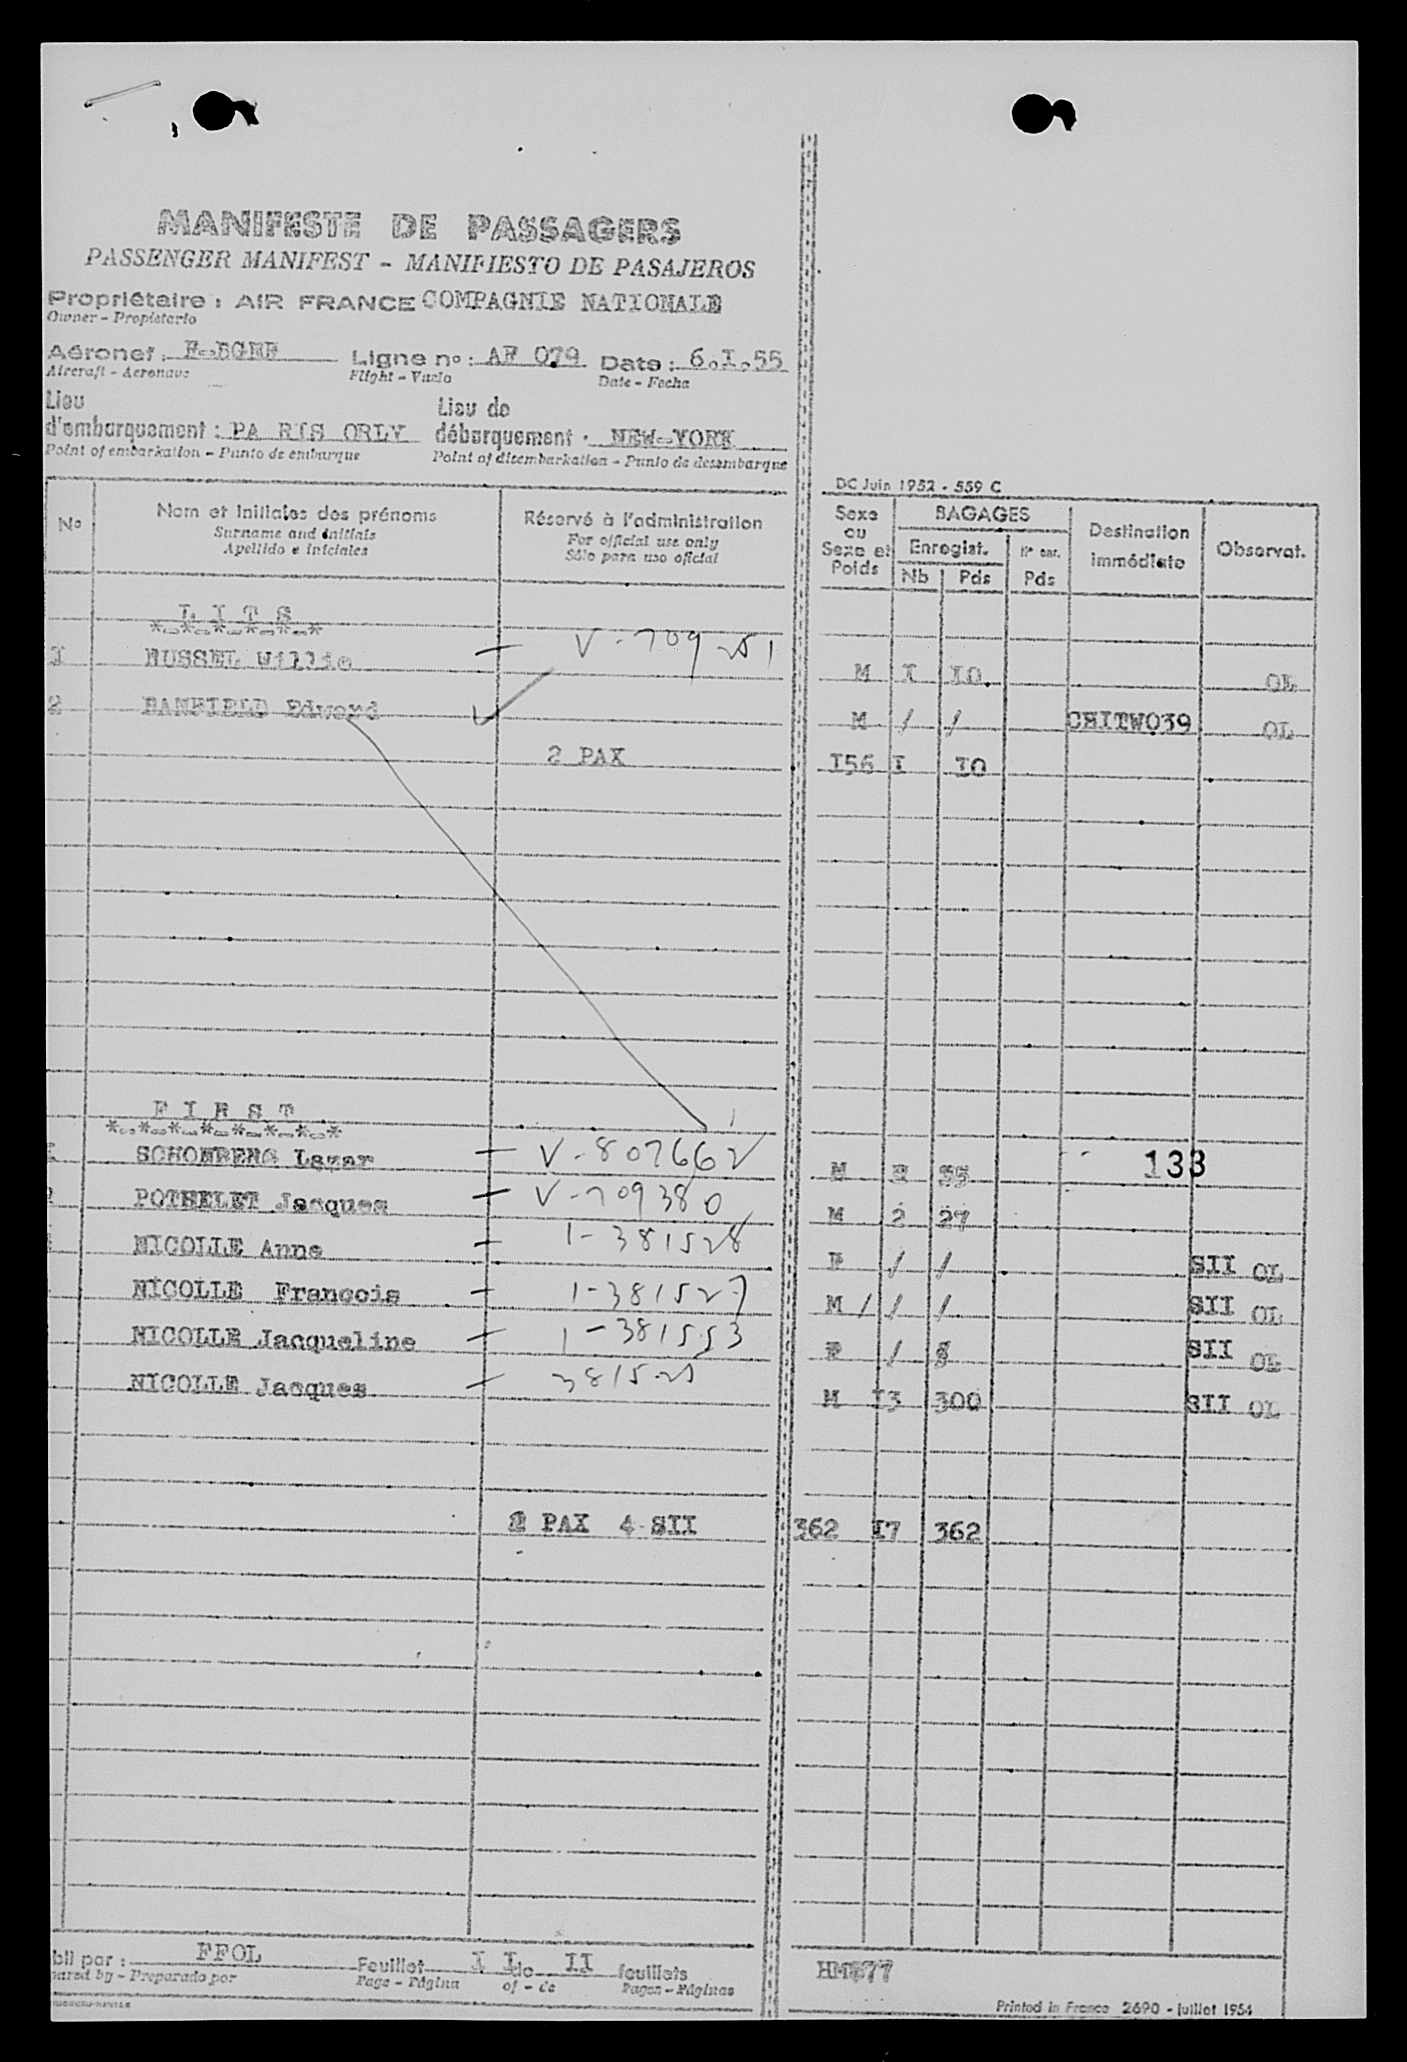 MANIFESTE DE PASSAGERS
PASSENGER MANIFEST - MANIFIESTO DE PASAJEROS
Propriétaire : AIR FRANCE COMPAGNIE NATIONALE
Owner - Propietario
Aéronef : F-BGNF Ligne no : AF 079 Date : 6.I.55
Aircraft - Aeronave Flight - Vuelo Date - Fecha
Lieu d'embarquement : PA RIS ORLY Lieu de débarquement : NEW-YORK
Point of embarkation - Punto de embarque Point of disembarkation - Punto de desembarque
DC Juin 1952 - 559 C
No Nom et initiales des prénoms Réservé à l'administration Sexe ou Sexe et Poids BAGAGES Destination immédiate Observat.
Surname and initials For official use only Enregist.
Apellido e iniciales Sólo para uso oficial Nb Pds Pds
L I T S
*-*-*-*-*-*
1 RUSSEL Willie — V-709251 M I IO OL
2 BANFIELD Edward M / / CHITWO39 OL
2 PAX I56 I IO
F I R S T
*-*-*-*-*-*-*-*
SCHOMBERG Lazar — V-807662 M 2 35 133
POTHELET Jacques — V-709380 M 2 27
NICOLLE Anne — 1-381528 F / / SII OL
NICOLLE François — 1-381527 M / / / SII OL
NICOLLE Jacqueline — 1-381553 F / SII OL
NICOLLE Jacques — M I3 300 SII OL
2 PAX 4 SII 362 I7 362
bli par : FFOL Feuillet I I de II feuillets
pared by - Preparado por Page - Página of - de Pages - Páginas
Printed in France 2690 - juillet 1954